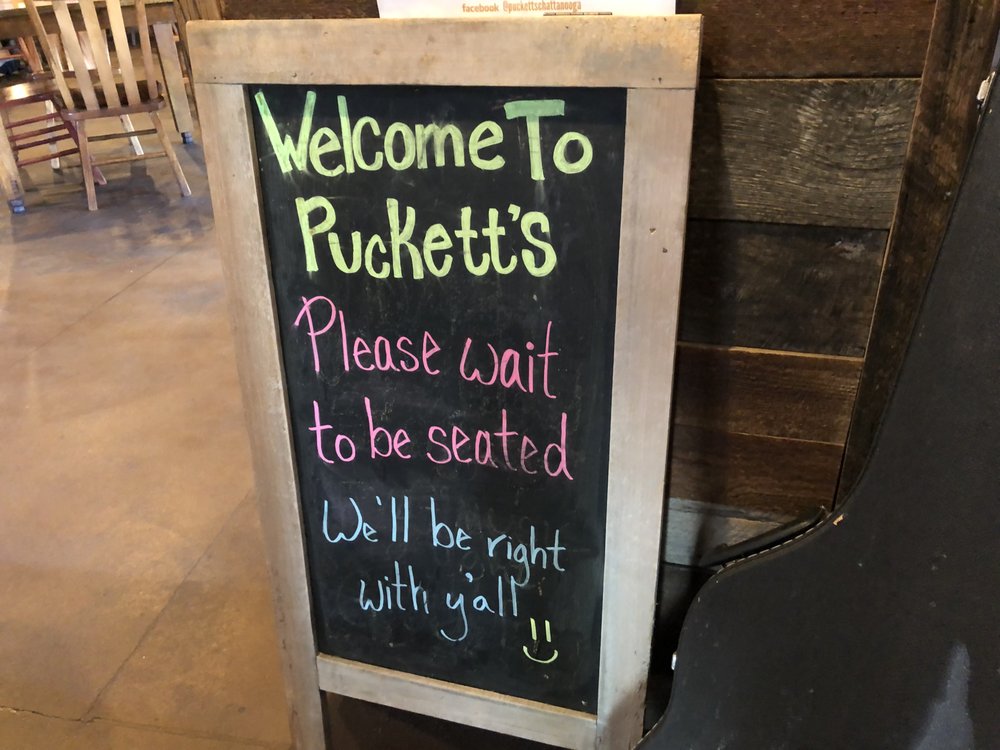 facebook @puckettschattanooga
Welcome To
Puckett's
Please wait
to be seated
We'll be right
with y'all